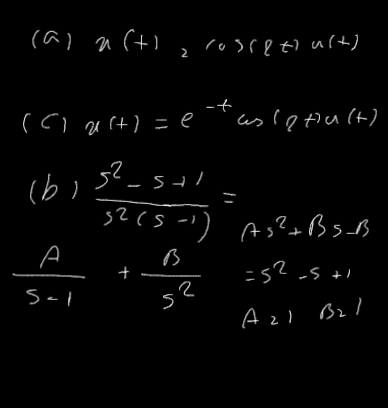 (a) x(t) = cos(2t)u(t)
(c) x(t) = e^{-t} cos(2t)u(t)
(b) \frac{s^2 - s + 1}{s^2(s-1)} =
\frac{A}{s-1} + \frac{B}{s^2}
As^2 + Bs - B
= s^2 - s + 1
A = 1 B = 1